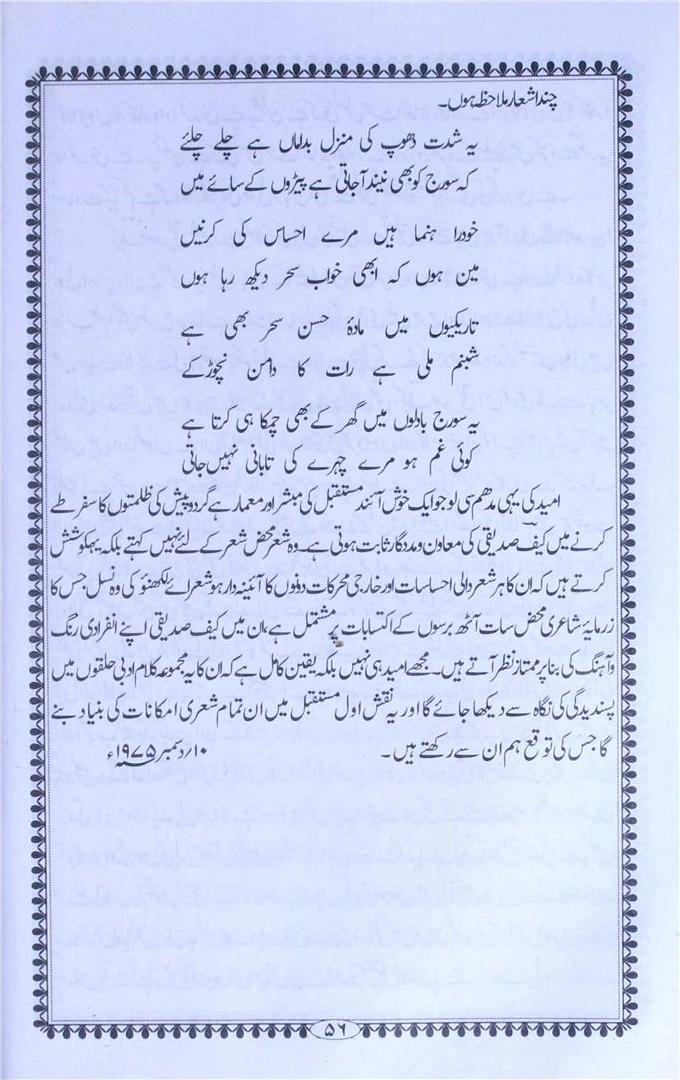 چند اشعار ملاحظہ ہوں۔
یہ شدت دھوپ کی منزل بداماں ہے چلے چلئے
کہ سورج کو بھی نیند آجاتی ہے پیڑوں کے سائے میں
خود راہنما ہیں مرے احساس کی کرنیں
مین ہوں کہ ابھی خواب سحر دیکھ رہا ہوں
تاریکیوں میں مادۂ حسن سحر بھی ہے
شبنم ملی ہے رات کا دامن نچوڑ کے
یہ سورج بادلوں میں گھر کے بھی چمکا ہی کرتا ہے
کوئی غم ہو مرے چہرے کی تابانی نہیں جاتی
امید کی یہی مدھم سی لو جو ایک خوش آئند مستقبل کی مبشر اور معمار ہے گرد و پیش کی ظلمتوں کا سفر طے
کرنے میں کیف صدیقی کی معاون و مددگار ثابت ہوتی ہے۔ وہ شعر محض شعر کے لئے نہیں کہتے بلکہ یہ کوشش
کرتے ہیں کہ ان کا ہر شعر دالی احساسات اور خارجی محرکات دونوں کا آئینہ دار ہو شعرائے لکھنؤ کی وہ نسل جس کا
زرمایۂ شاعری محض سات آٹھ برسوں کے اکتسابات پر مشتمل ہے، ان میں کیف صدیقی اپنے انفرادی رنگ
و آہنگ کی بنا پر ممتاز نظر آتے ہیں۔ مجھے امید ہی نہیں بلکہ یقین کامل ہے کہ ان کا یہ مجموعہ کلام ادبی حلقوں میں
پسندیدگی کی نگاہ سے دیکھا جائے گا اور یہ نقش اول مستقبل میں ان تمام شعری امکانات کی بنیاد بنے
گا جس کی توقع ہم ان سے رکھتے ہیں۔ ۱۰؍دسمبر ۱۹۷۵ء
۵۶